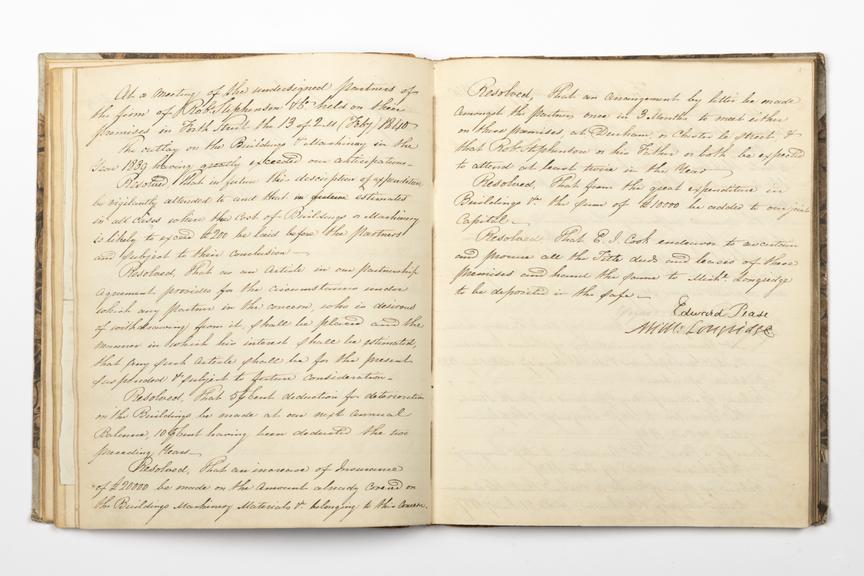 At a meeting of the undersigned partners of
the firm of Robt. Stephenson & Co held on their
premises in Forth Street the 13 of 2 M (Feby) 1840
the outlay on the Buildings & Machinery in the
Year 1839 having greatly exceeded our anticipations -
Resolved That in future this description of expenditure
be vigilantly attended to and that in estimates
in all cases where the Cost of Buildings or Machinery
is likely to exceed £200 be laid before the partners
and subject to their conclusion -
Resolved, That as an Article in our partnership
agreement provides for the circumstances under
which any partner in the concern, who is desirous
of withdrawing from it, shall be placed and the
manner in which his interest shall be estimated,
that any such Article shall be for the present
suspended & subject to future consideration -
Resolved, That 5 ⅌ Cent deduction for deterioration
on the Buildings be made at our next Annual
Balance, 10 ⅌ Cent having been deducted the two
preceding Years -
Resolved, That an increase of Insurance
of £20000 be made on the amount already covered on
the Buildings Machinery Materials &c. belonging to this Concern.
Resolved, That an arrangement by letter be made
amongst the partners once in 3 Months to meet either
on these premises at Durham or Chester le Street, &
that Robt. Stephenson or his Father or both be expected
to attend at least twice in the Year -
Resolved, That from the great expenditure in
Buildings &c. the sum of £10000 be added to our joint
Capital -
Resolved That E. J. Cook endeavor to ascertain
and procure all the Title deeds and leases of these
premises and hand the same to Michl. Longridge
to be deposited in the safe -
Edward Pease
Michl. Longridge